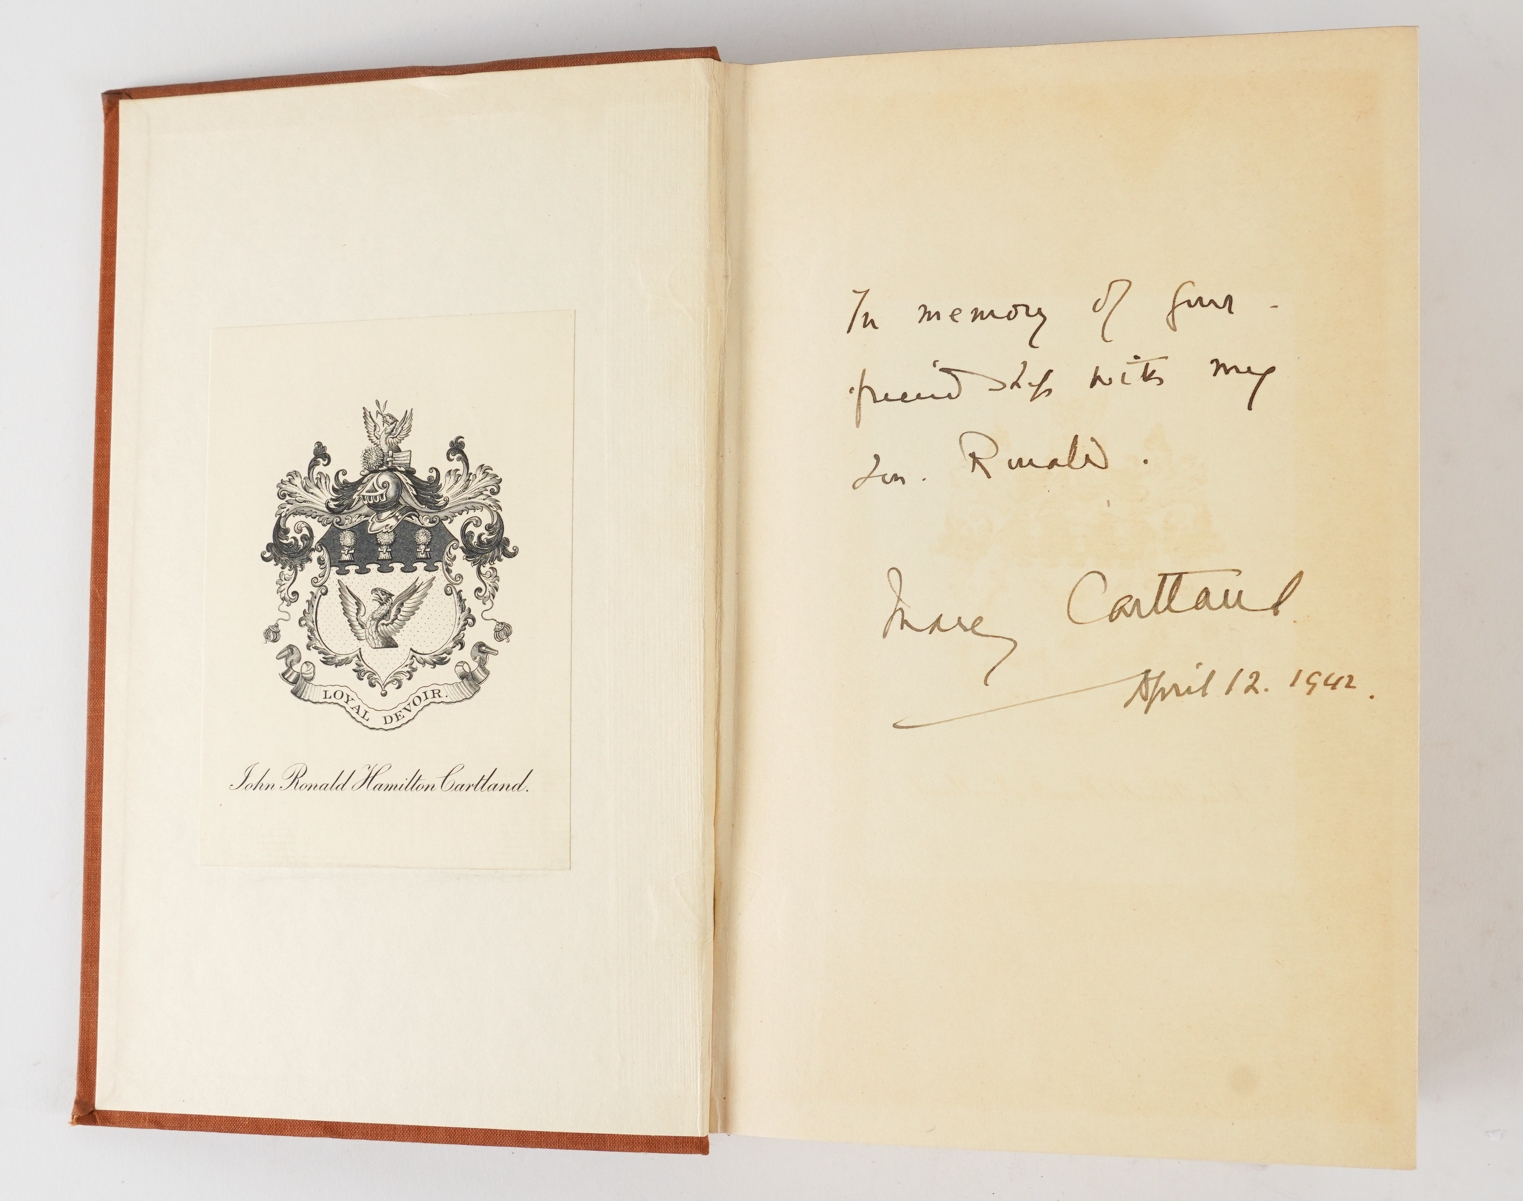 LOYAL DEVOIR.
John Ronald Hamilton Cartland.
In memory of your
friendship with my
son. Ronald.
Mary Cartland.
April 12. 1942.